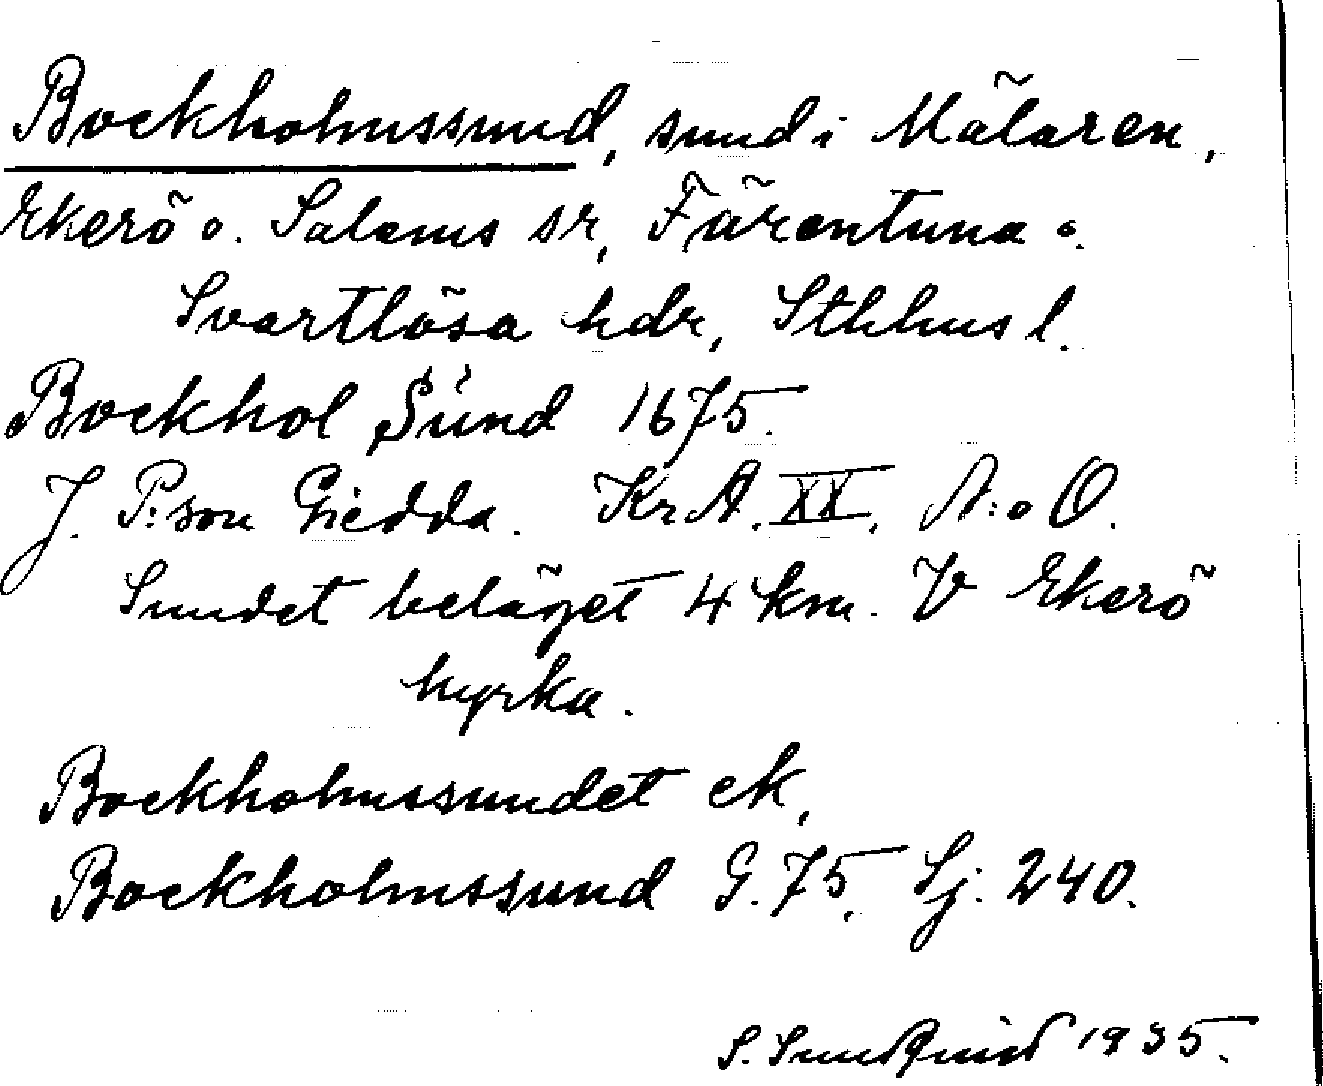 Bockholmssund, sund i Mälaren,
Ekerö o. Salems sr, Färentuna o.
Svartlösa hdr, Sthlms l.
Bockhol Sund 1675.
J. P:son Giedda. KrA. XX, A:o O.
Sundet beläget 4 km. V Ekerö
kyrka.
Bockholmssundet ek,
Bockholmssund G. 75, Sj. 240.
S. Sundquist 1935.